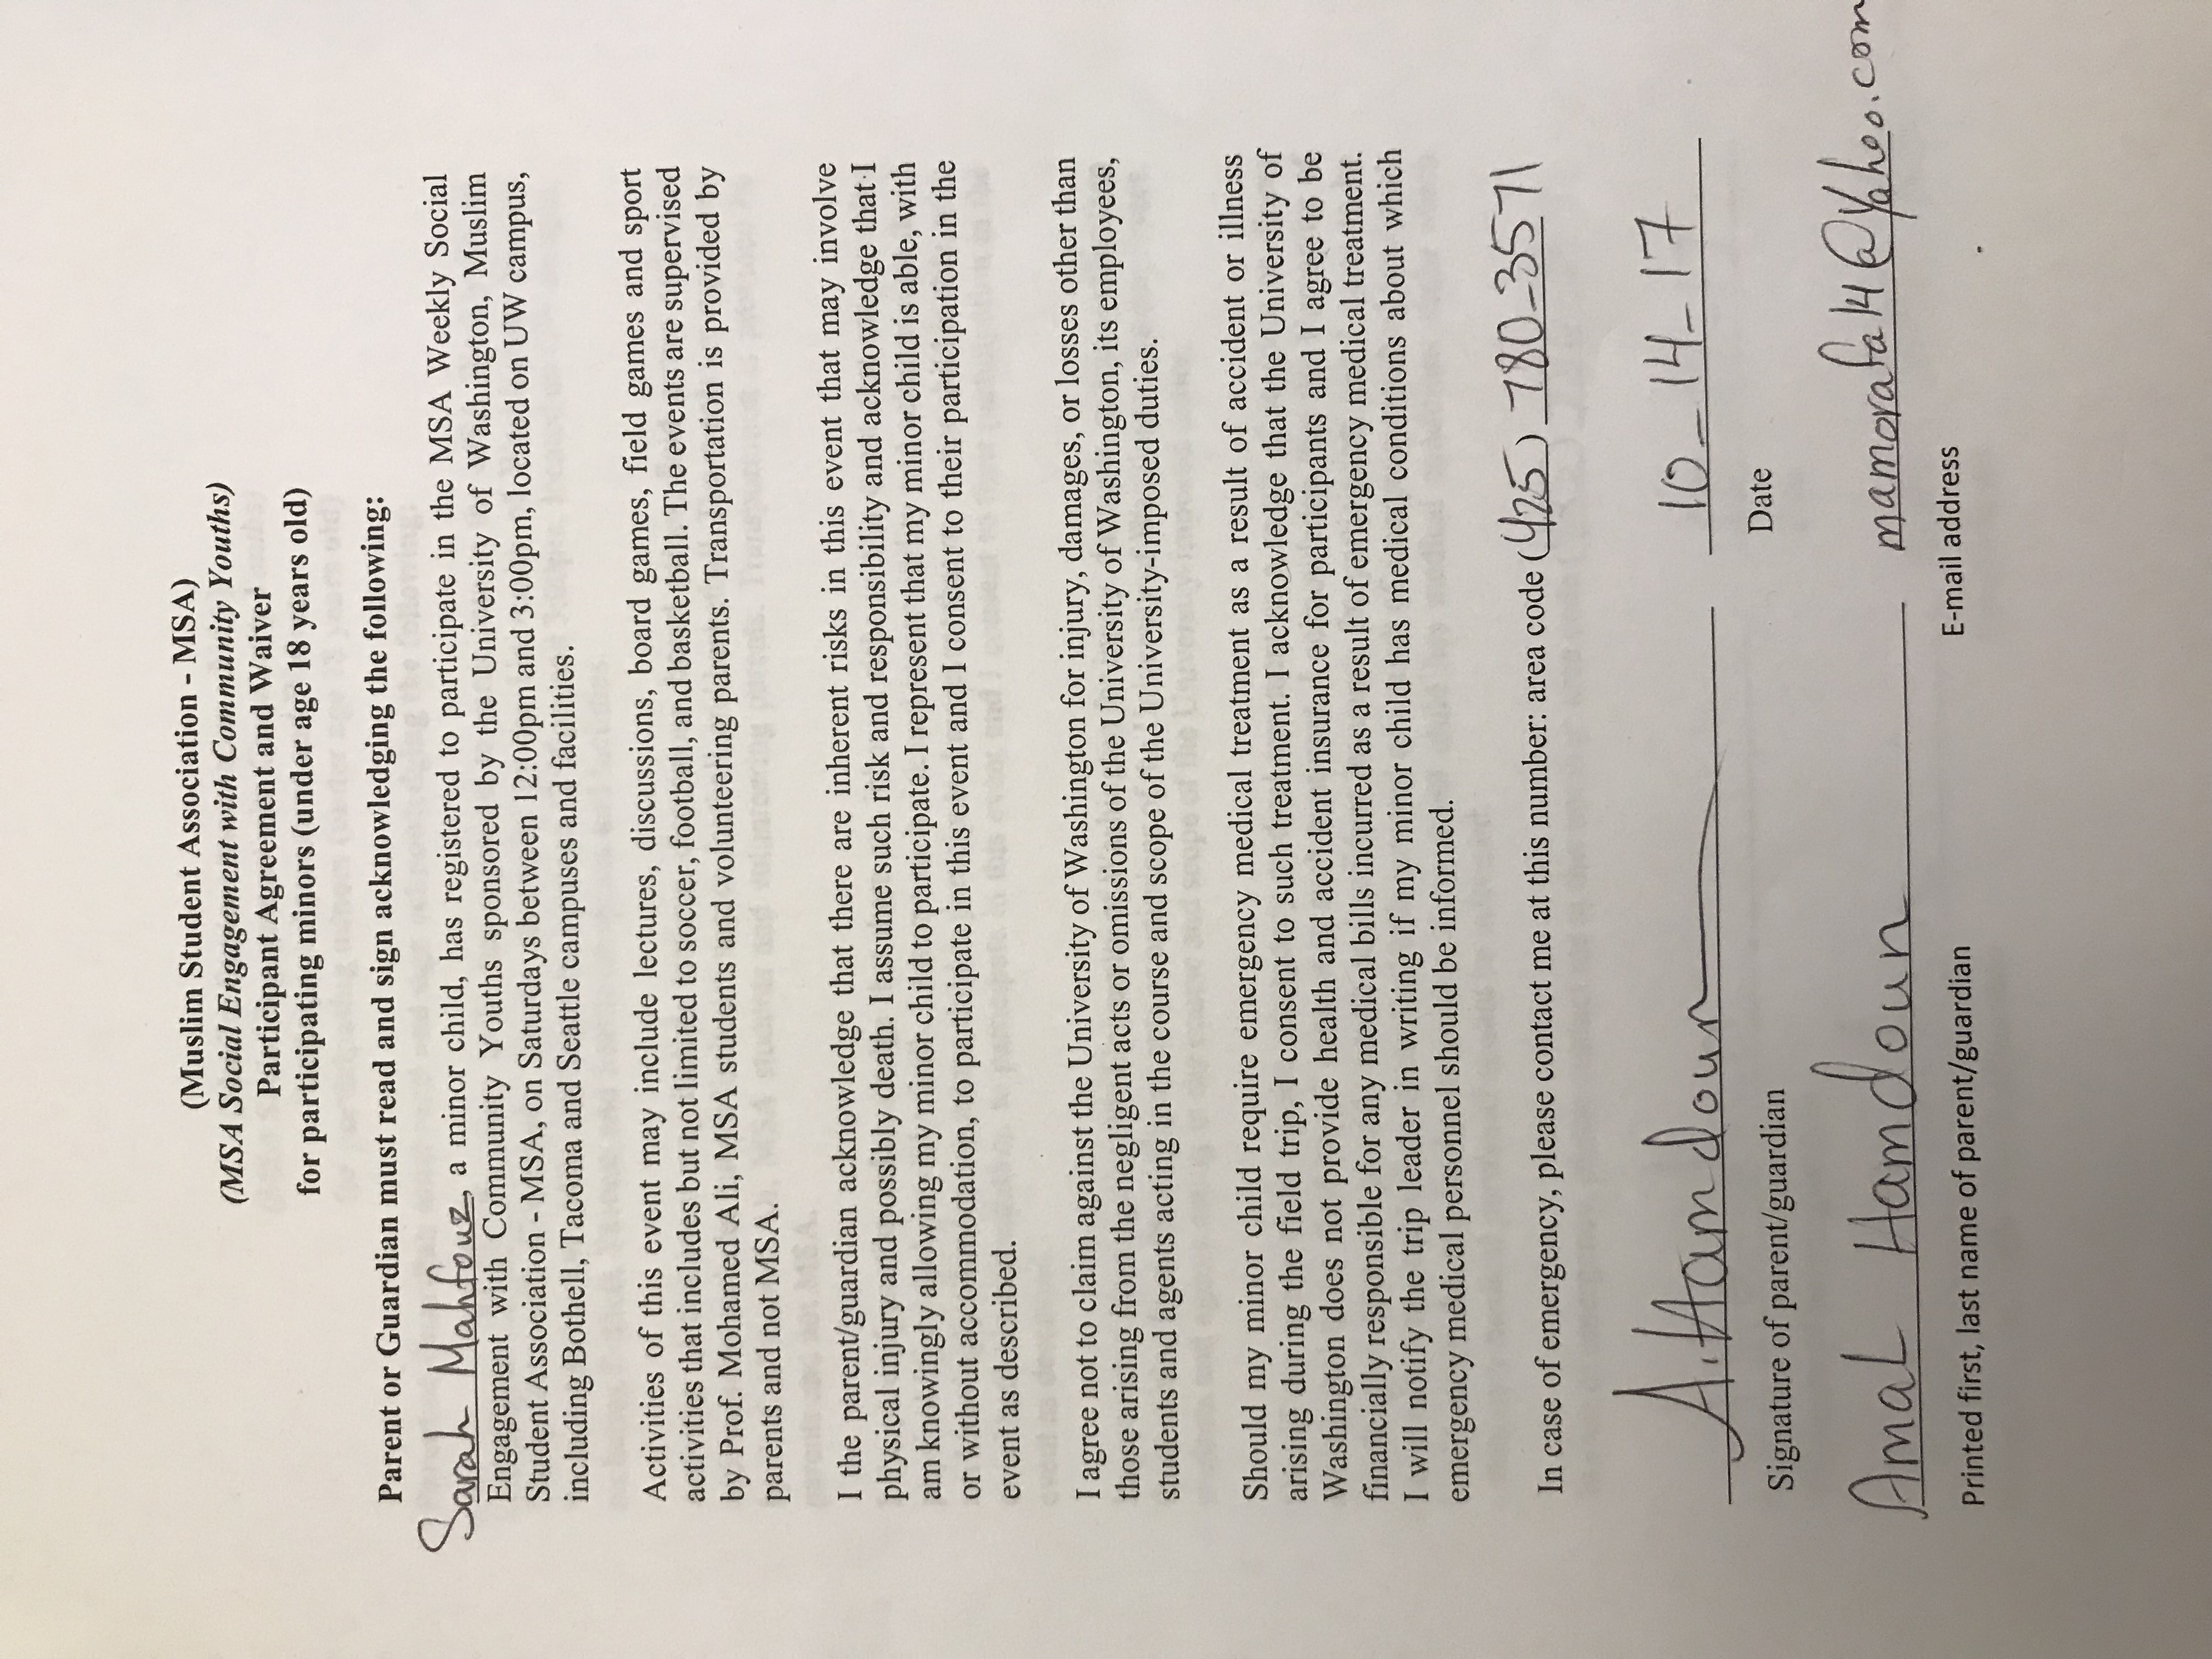 (Muslim Student Association - MSA)
(MSA Social Engagement with Community Youths)
Participant Agreement and Waiver
for participating minors (under age 18 years old)
Parent or Guardian must read and sign acknowledging the following:
Sarah Mahfouz, a minor child, has registered to participate in the MSA Weekly Social
Engagement with Community Youths sponsored by the University of Washington, Muslim
Student Association - MSA, on Saturdays between 12:00pm and 3:00pm, located on UW campus,
including Bothell, Tacoma and Seattle campuses and facilities.
Activities of this event may include lectures, discussions, board games, field games and sport
activities that includes but not limited to soccer, football, and basketball. The events are supervised
by Prof. Mohamed Ali, MSA students and volunteering parents. Transportation is provided by
parents and not MSA.
I the parent/guardian acknowledge that there are inherent risks in this event that may involve
physical injury and possibly death. I assume such risk and responsibility and acknowledge that I
am knowingly allowing my minor child to participate. I represent that my minor child is able, with
or without accommodation, to participate in this event and I consent to their participation in the
event as described.
I agree not to claim against the University of Washington for injury, damages, or losses other than
those arising from the negligent acts or omissions of the University of Washington, its employees,
students and agents acting in the course and scope of the University-imposed duties.
Should my minor child require emergency medical treatment as a result of accident or illness
arising during the field trip, I consent to such treatment. I acknowledge that the University of
Washington does not provide health and accident insurance for participants and I agree to be
financially responsible for any medical bills incurred as a result of emergency medical treatment.
I will notify the trip leader in writing if my minor child has medical conditions about which
emergency medical personnel should be informed.
In case of emergency, please contact me at this number: area code (425) 780-3571
A. Hamdoun 10-14-17
Signature of parent/guardian Date
Amal Hamdoun mamorafa14@yahoo.com
Printed first, last name of parent/guardian E-mail address